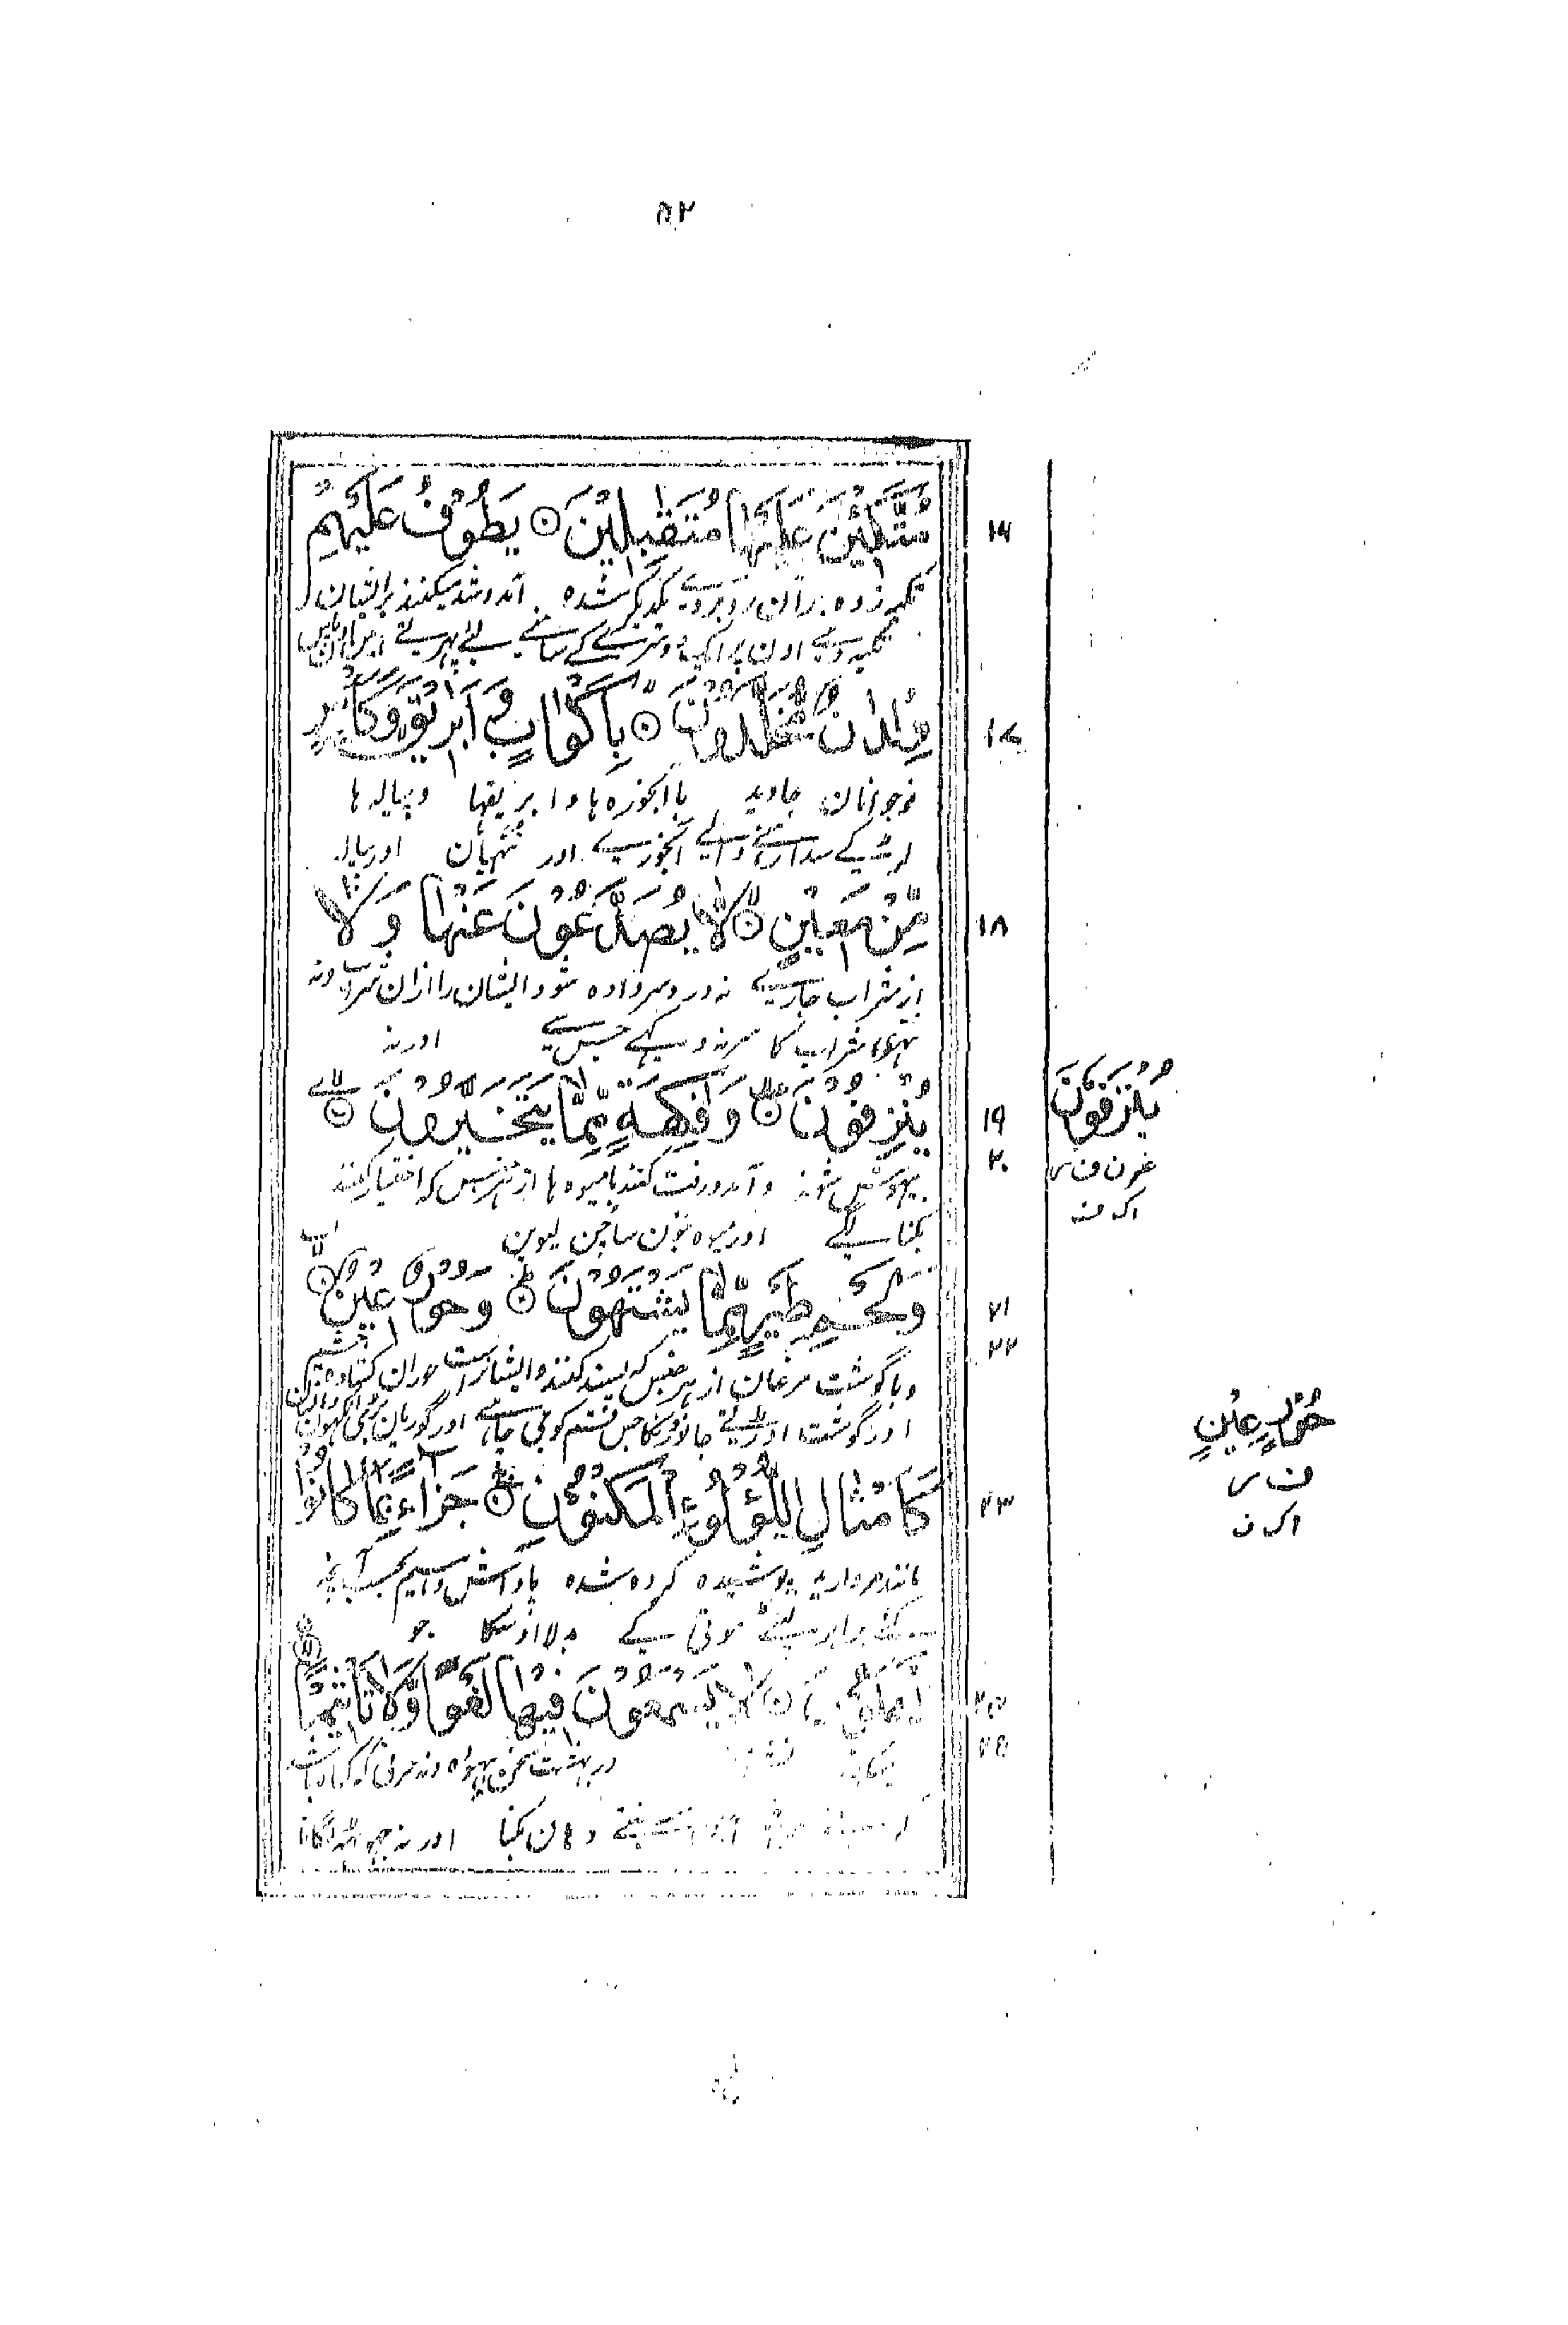 ٥٢
مُتَّكِئِيْنَ عَلَيْهَا مُتَقٰبِلِيْنَ ۝ يَطُوْفُ عَلَيْهِمْ
١٧
تکیه زده بر آن روبروے یکدیگر شده آمد و شد میکنند بر ایشان
تکیہ دیے اون پر ایک دوسرے کے سامنے لئے پھرتے ہین اون پاس
وِلْدَانٌ مُّخَلَّدُوْنَ ۝ بِاَكْوَابٍ وَّ اَبَارِيْقَ وَكَاْسٍ
نوجوانان جاوید با آبخوره ها و ابریقها و پیاله ها
لڑکے سدا رہنے والے آبخورے اور تتہیان اور پیالہ
مِّنْ مَّعِيْنٍ ۝ لَّا يُصَدَّعُوْنَ عَنْهَا وَلَا
١٨
از شراب جاریے نه درد سر داده شود ایشان را ازان شراب و نه
شراب کا سر نہ دکہے جس سے اور نہ
يُنْزِفُوْنَ ۝ وَفَاكِهَةٍ مِّمَّا يَتَخَيَّرُوْنَ ۝
١٩
٢٠
بیهوش شوند و آمد و رفت کنند با میوه ها از هر جنس که اختیار کنند
بکنا لگے اور میوہ جون سا چن لیوین
وَلَحْمِ طَيْرٍ مِّمَّا يَشْتَهُوْنَ ۝ وَحُوْرٌ عِيْنٌ ۝
٢١
٢٢
و با گوشت مرغان از هر جنس که پسند کنند و ایشانراست حوران کشاده چشم
اور گوشت اوڑتے جانورنکا جس قسم کو جی چاہے اور گوریان بڑی آنکهون والیان
كَاَمْثَالِ اللُّؤْلُؤِ الْمَكْنُوْنِ ۝ جَزَاءً بِمَا كَانُوْا
٢٣
مانند مروارید پوشیده کرده شده پاداش دادیم بحسب آنچه
برابر لپٹے موتی کے بدلا اوسکا جو
يَعْمَلُوْنَ ۝ لَا يَسْمَعُوْنَ فِيْهَا لَغْوًا وَّلَا تَاْثِيْمًا
٢٥
در بهشت سخن بیهوده و نه حرفی که گناه باشد
وهان بکنا اور نہ جهوٹہ لگانا
يُنْزَفُوْنَ
حُوْرٍ عِيْنٍ